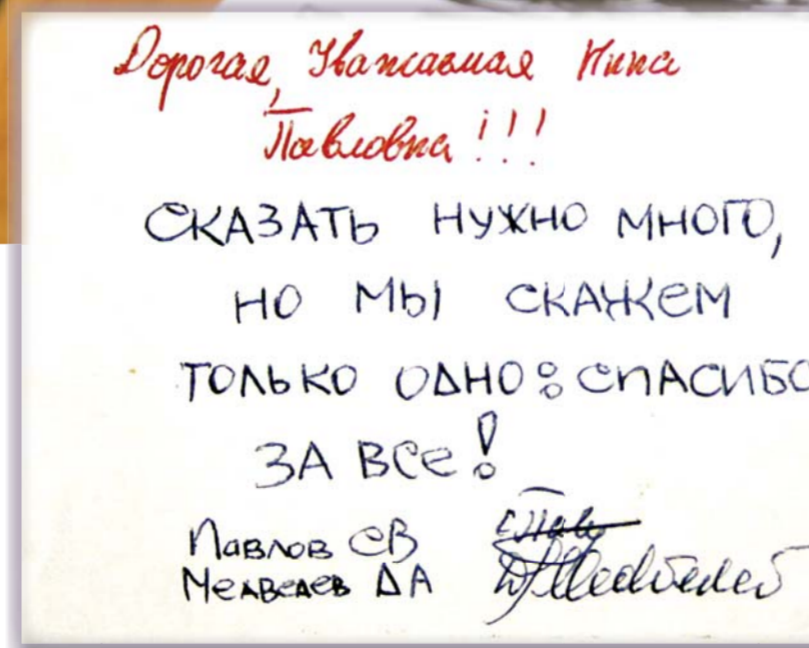 Дорогая, Уважаемая Нина
Павловна!!!
СКАЗАТЬ НУЖНО МНОГО,
НО МЫ СКАЖЕМ
ТОЛЬКО ОДНО: СПАСИБО
ЗА ВСЕ!
Павлов СВ
Медведев ДА